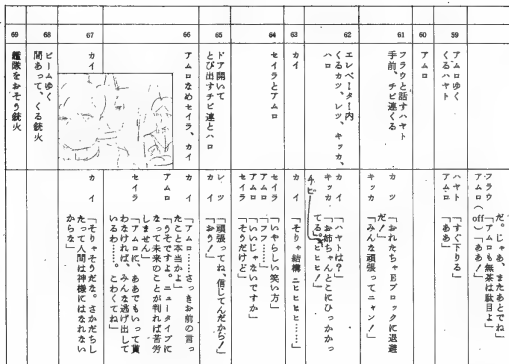 59
アムロゆく
くるハヤト
フラウ
だ。じゃあ、またあとでね」
「アムロも無茶は駄目よ」
アムロ（off）「ああ！」
ハヤト「すぐ下りる」
アムロ「ああ」
60
アムロ
61
フラウと話すハヤト
手前、チビ連くる
カツ「おれたちゃBブロックに退避
だ！」
キッカ「みんな頑張ってニャン！」
62
エレベーター内
くるカツ、レツ、キッカ、
ハロ
カイ「ハヤトは？」
キッカ「お姉ちゃんとこにひっかか
てる。ヒヒヒ！」
チビ
63
カイ
カイ「そりゃ結構ニヒヒヒ……」
64
セイラとアムロ
セイラ「いやらしい笑い方」
アムロ「フフ……」
アムロ「いいじゃないですか」
セイラ「そうだけど」
65
ドア開いて
とび出すチビ連とハロ
レツ「頑張ってね、信じてんだから！」
カイ「おう！」
66
アムロなめセイラ、カイ
カイ「アムロ……さっきお前の言っ
たこと本当かよ」
アムロ「うそですよ。ニュータイプに
なって未来のことが判れば苦労
しません」
セイラ「アムロに、ああでもいって貰
わなければ、みんな逃げ出して
いるわ……こわくてね」
67
カイ
カイ「そりゃそうだな。さかだちし
たって人間は神様にはなれない
からな」
68
ビームゆく
間あって、くる銃火
69
艦隊をおそう銃火